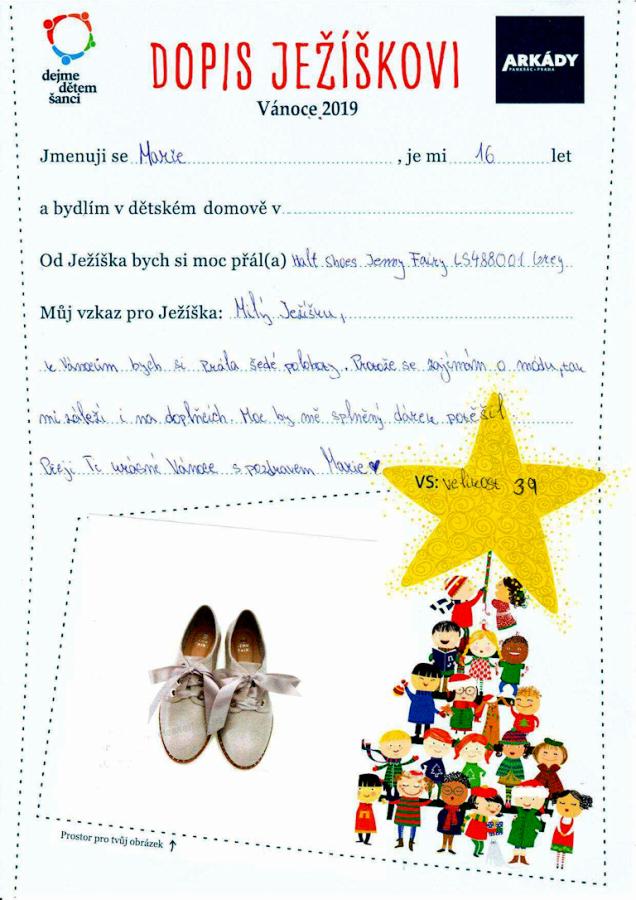 dejme
dětem
šanci
DOPIS JEŽÍŠKOVI
Vánoce 2019
ARKÁDY
PANKRÁC • PRAHA
Jmenuji se Marie , je mi 16 let
a bydlím v dětském domově v
Od Ježíška bych si moc přál(a) Half Shoes Jenny Fairy LS488001 Grey
Můj vzkaz pro Ježíška: Milý Ježíšku,
k Vánocům bych si přála šedé poloboty. Protože se zajímám o módu, tak
mi záleží i na doplňcích. Moc by mě splněný dárek potěšil
Přeji Ti krásné Vánoce s pozdravem Marie ♥
VS: velikost 39
Prostor pro tvůj obrázek ↑